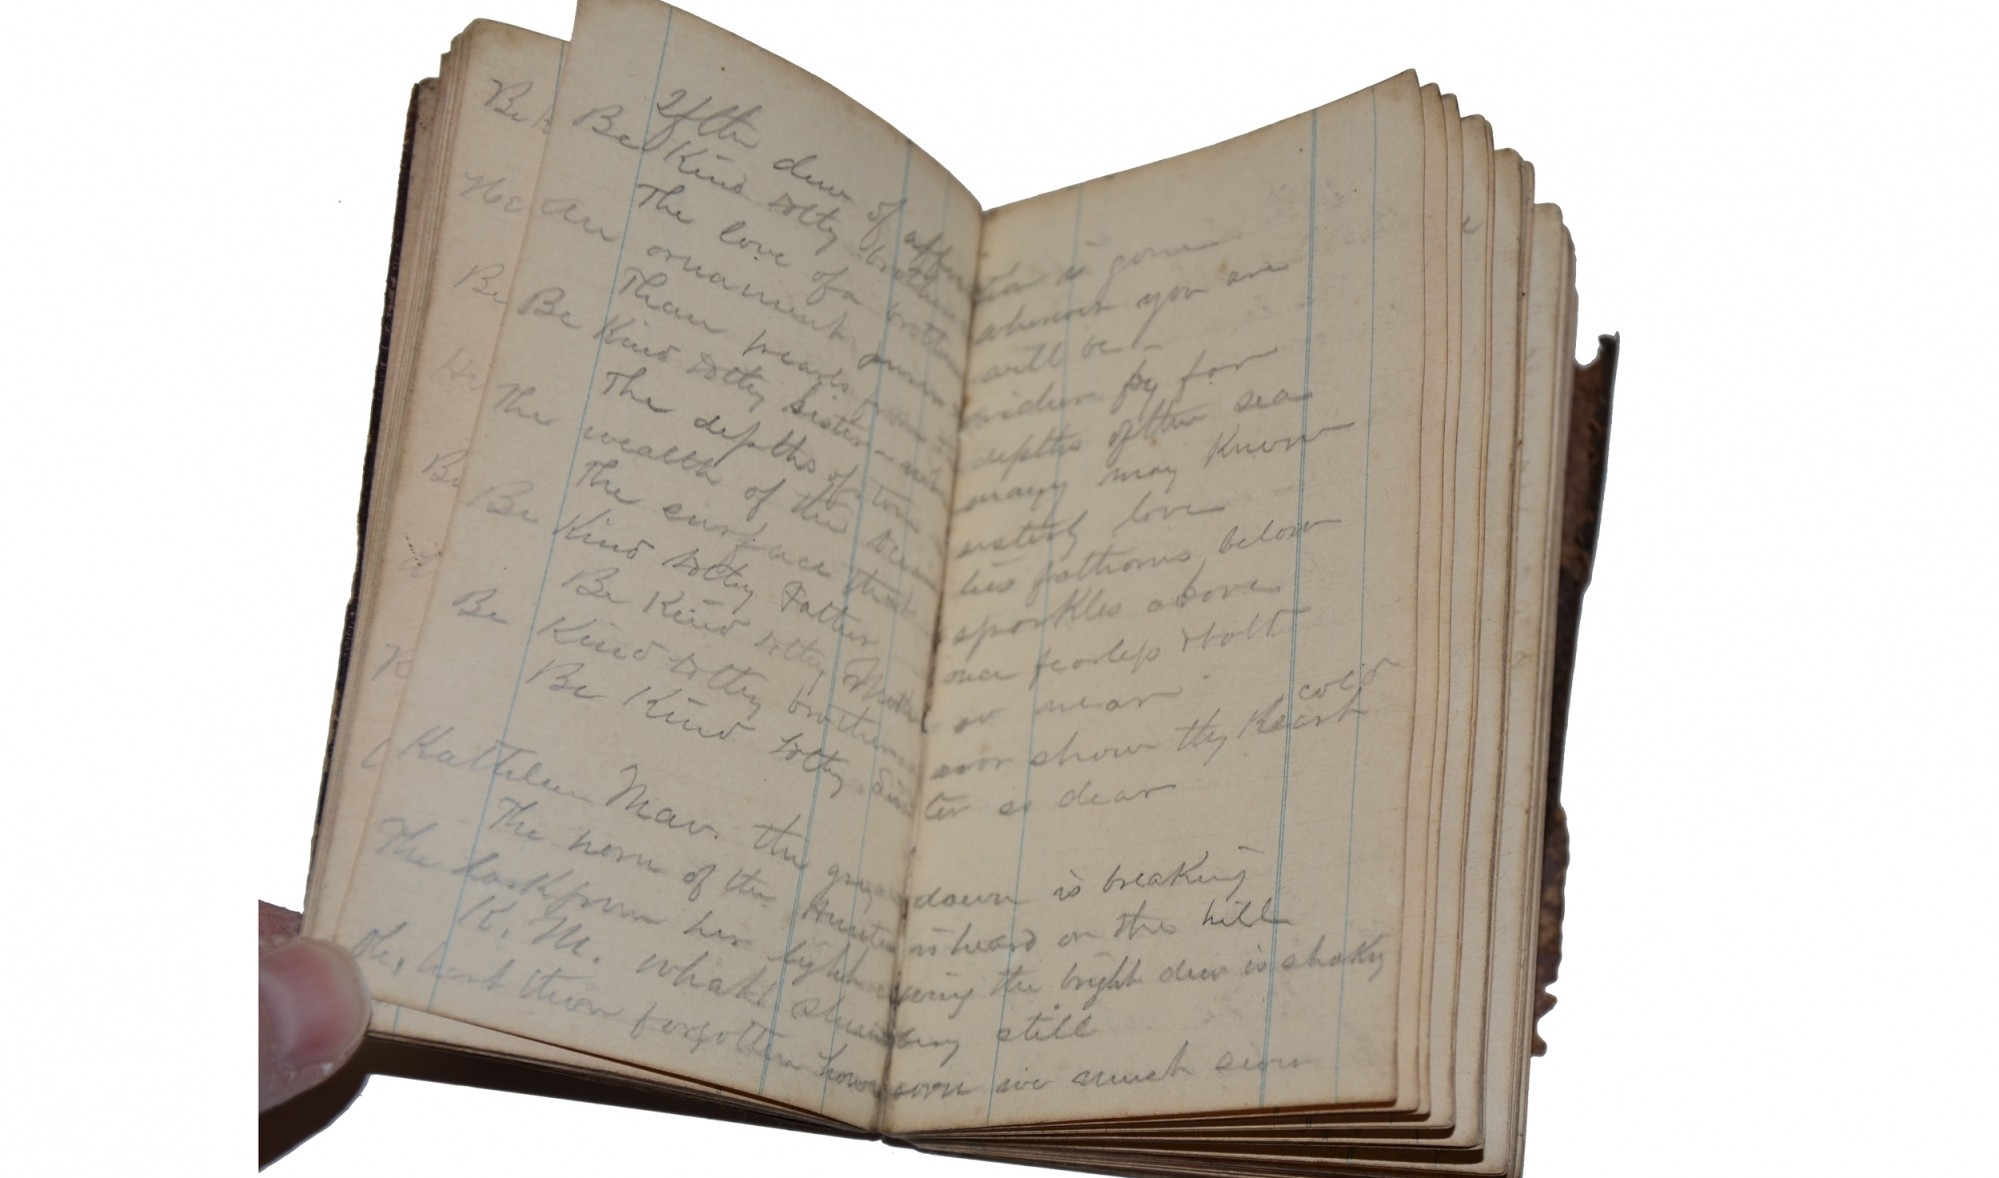 Be
Be
He
Be
If the dew of affection is gone
Be Kind to thy brother wherever you are
The love of a brother will be -
An ornament purer & richer by far
Than pearls from the depths of the sea
Be Kind to thy Sister - not many may know
The depths of true sisterly love
The wealth of the ocean lies fathoms below
The surface that sparkles above
Be Kind to thy Father once fearless & bold
Be Kind to thy Mother so near
Be Kind to thy brother nor show thy heart cold
Be Kind to thy Sister so dear
Kathleen Mav. the grey dawn is breaking
The horn of the Hunter is heard on the hill
The lark from her light wing the bright dew is shaky
K. M. what! slumbering still
Oh, hast thou forgotten how soon we must sever